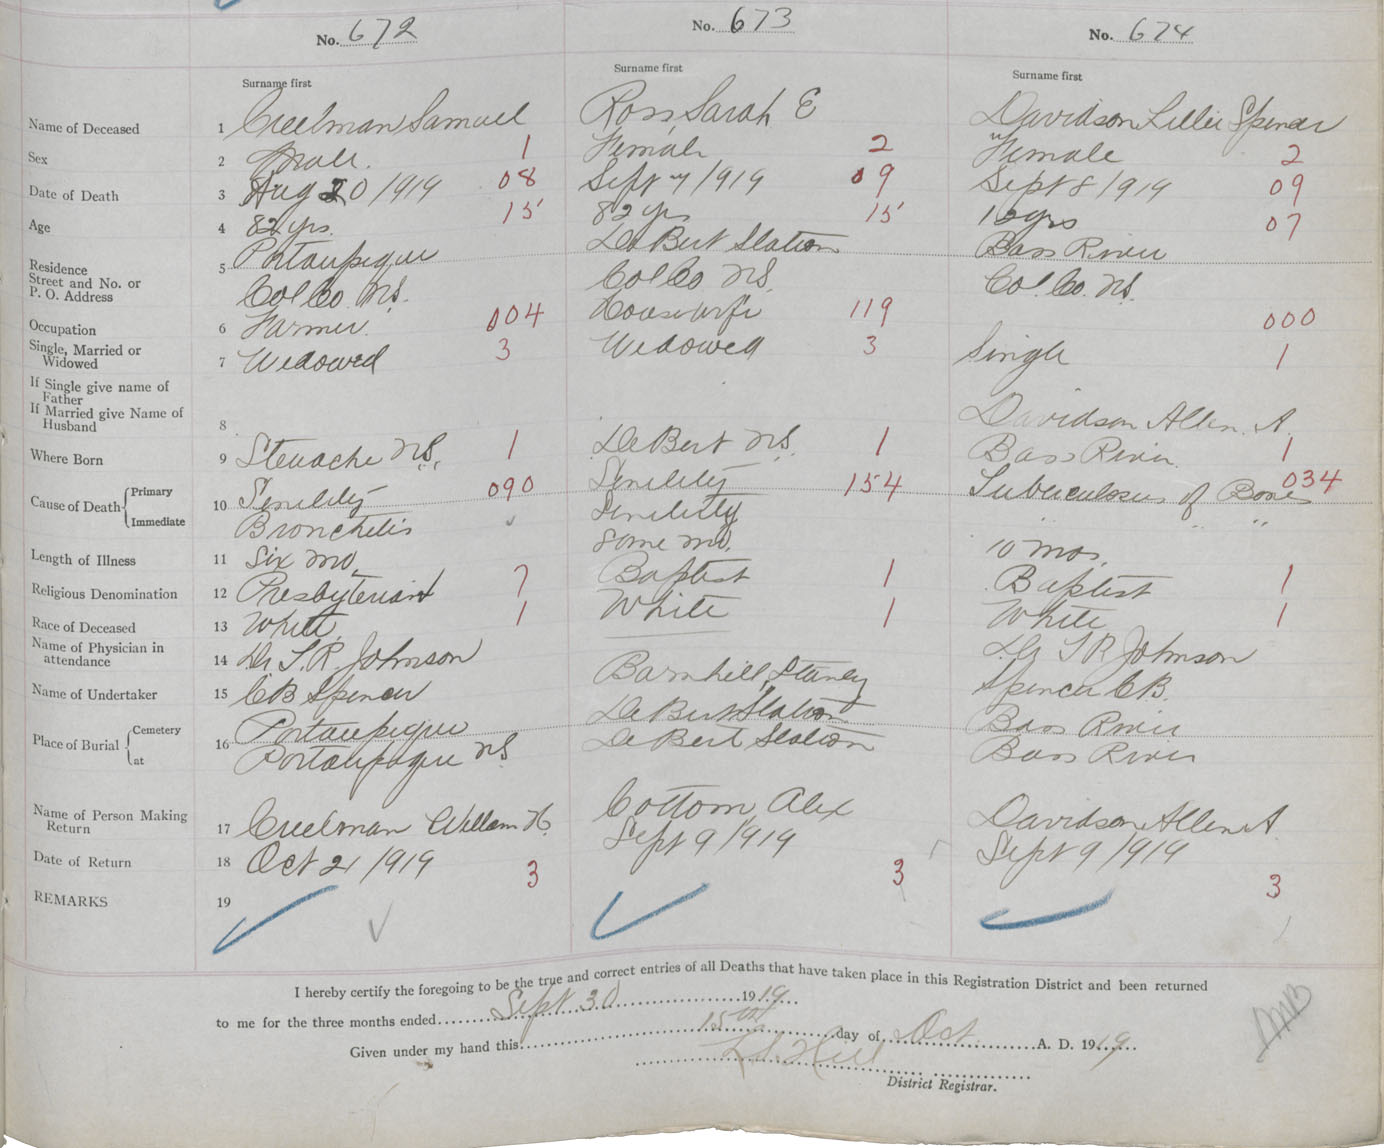 No. 672 No. 673 No. 674
Surname first Surname first Surname first
Name of Deceased 1 Creelman, Samuel Ross, Sarah E Davidson, Lillie Spencer
Sex 2 Male. 1 Female 2 Female 2
Date of Death 3 Aug 20 / 1919 08 Sept 7 / 1919 09 Sept 8 / 1919 09
Age 4 82 yrs. 15 82 yrs 15 12 yrs 07
Residence
Street and No. or
P. O. Address
5 Portaupique DeBert Station Bass River
Col Co. N.S. Col Co N.S. Col. Co. N.S.
Occupation 6 Farmer. 004 Housewife 119 000
Single, Married or
Widowed
7 Widowed 3 Widowed 3 Single 1
If Single give name of
Father
If Married give Name of
Husband
8 Davidson Allen. A.
Where Born 9 Steiache N.S. 1 DeBert N.S. 1 Bass River 1
Cause of Death Primary 10 Senility 090 Senility 154 Tuberculosis of Bones 034
Immediate Bronchitis Senility " " "
Length of Illness 11 Six mo. some mo. 10 mos.
Religious Denomination 12 Presbyterian 7 Baptist 1 Baptist 1
Race of Deceased 13 White 1 White 1 White 1
Name of Physician in
attendance
14 Dr T. R. Johnson Dr T R Johnson
Name of Undertaker 15 C B Spencer Barnhill, Stanley Spencer C B.
Place of Burial Cemetery 16 Portaupique DeBert Station Bass River
at Portaupique N S DeBert Station Bass River
Name of Person Making
Return
17 Creelman William H. Cottom, Alex Davidson Allen A
Date of Return 18 Oct 21 / 1919 3 Sept 9 / 1919 3 Sept 9 / 1919 3
REMARKS 19
I hereby certify the foregoing to be the true and correct entries of all Deaths that have taken place in this Registration District and been returned
to me for the three months ended Sept 30 1919
Given under my hand this 15th day of Oct A. D. 1919
Hill
District Registrar.